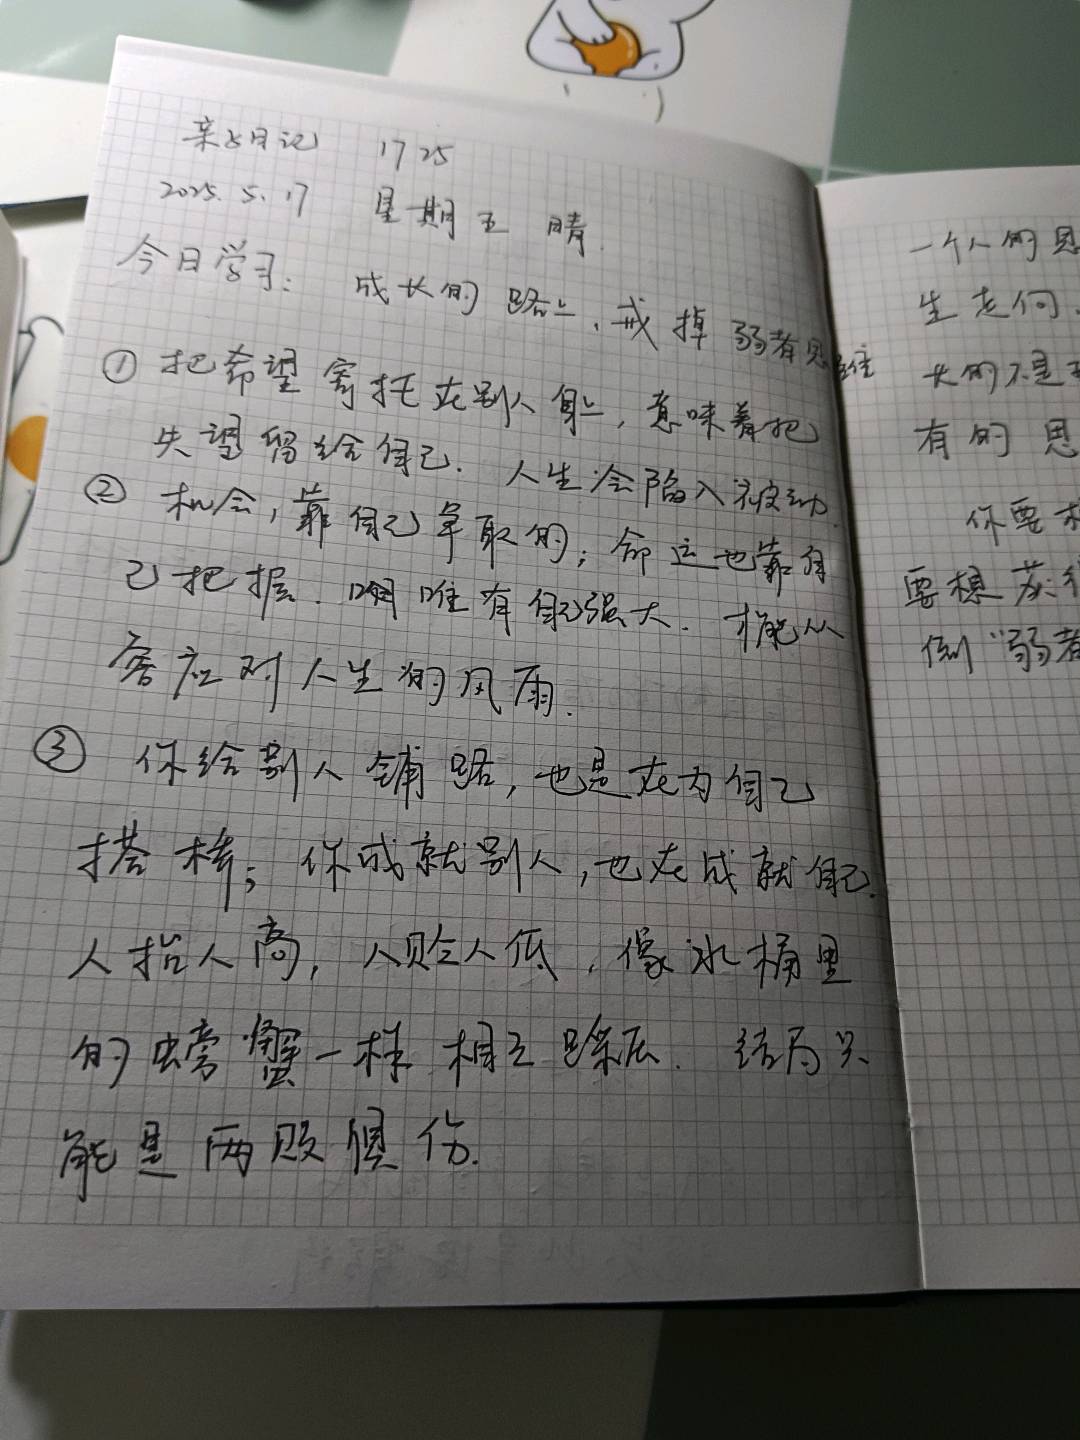 亲子日记 1725
2025.5.17 星期五 晴.
今日学习: 成长的路上、戒掉弱者思维
① 把希望寄托在别人身上,意味着把
失望留给自己. 人生会陷入被动.
② 机会,靠自己争取的;命运也靠自
己把握. 唯有自己强大. 才能从
容应对人生的风雨.
③ 你给别人铺路,也是在为自己
搭桥;你成就别人,也在成就自己.
人抬人高,人贬人低,像水桶里
的螃蟹一样相互踩压. 结局只
能是两败俱伤.
一个人的思
生走向.
大的不是
有的思
你要
要想获得
倒“弱者